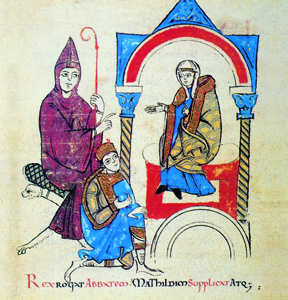 Rex rogat Abbatem Mathildim Supplicat Atq;